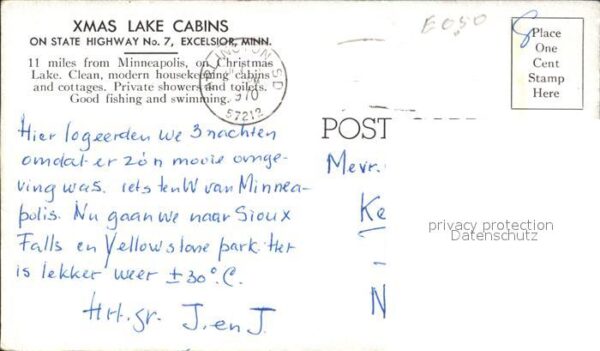 XMAS LAKE CABINS
ON STATE HIGHWAY No. 7, EXCELSIOR, MINN.
11 miles from Minneapolis, on Christmas
Lake. Clean, modern housekeeping cabins
and cottages. Private showers and toilets.
Good fishing and swimming.
ARLINGTON SD
1970
57212
E050
8
Place
One
Cent
Stamp
Here
Hier logeerden we 3 nachten
omdat er zó'n mooie omge-
ving was. iets ten W van Minnea-
polis. Nu gaan we naar Sioux
Falls en Yellowstone park. Het
is lekker weer ± 30°. C.
Hrt. gr. J. en J.
POST
Mevr.
Ke
N
privacy protection
Datenschutz